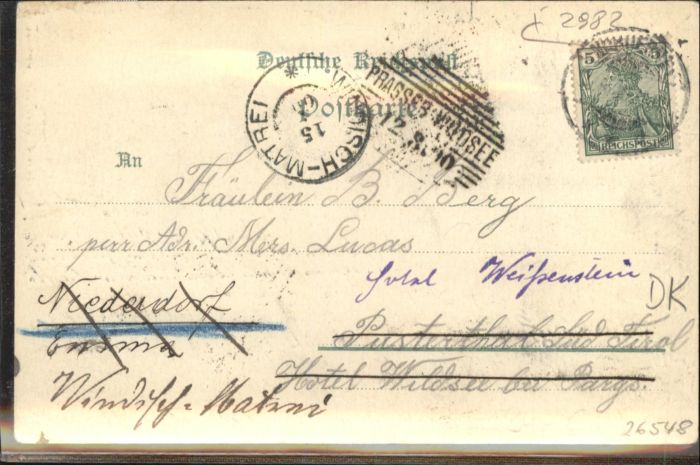 2982
5 5
REICHSPOST
Deutsche Reichspost
Postkarte
WINDISCH-MATREI
15
PRAGSER WILDSEE
12. 8. 00
An
Fräulein B. Berg
per Adr. Mrs. Lucas
Hotel Weißenstein
Niederdorf
DK
Pusterthal Süd Tirol
Hotel Wildsee bei Pargs.
Windisch-Matrei
26548